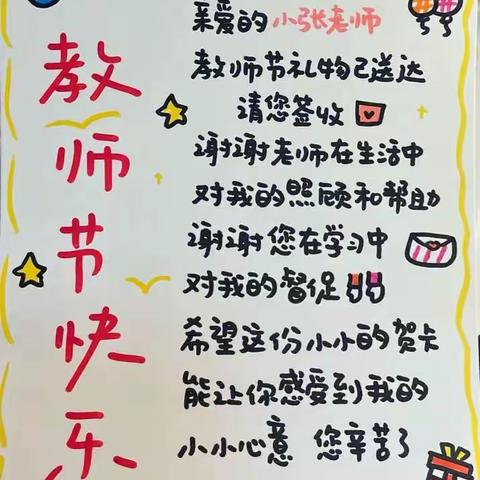 教师节快乐
亲爱的小张老师
教师节礼物已送达
请您签收
谢谢老师在生活中
对我的照顾和帮助
谢谢您在学习中
对我的督促
希望这份小小的贺卡
能让你感受到我的
小小心意 您辛苦了